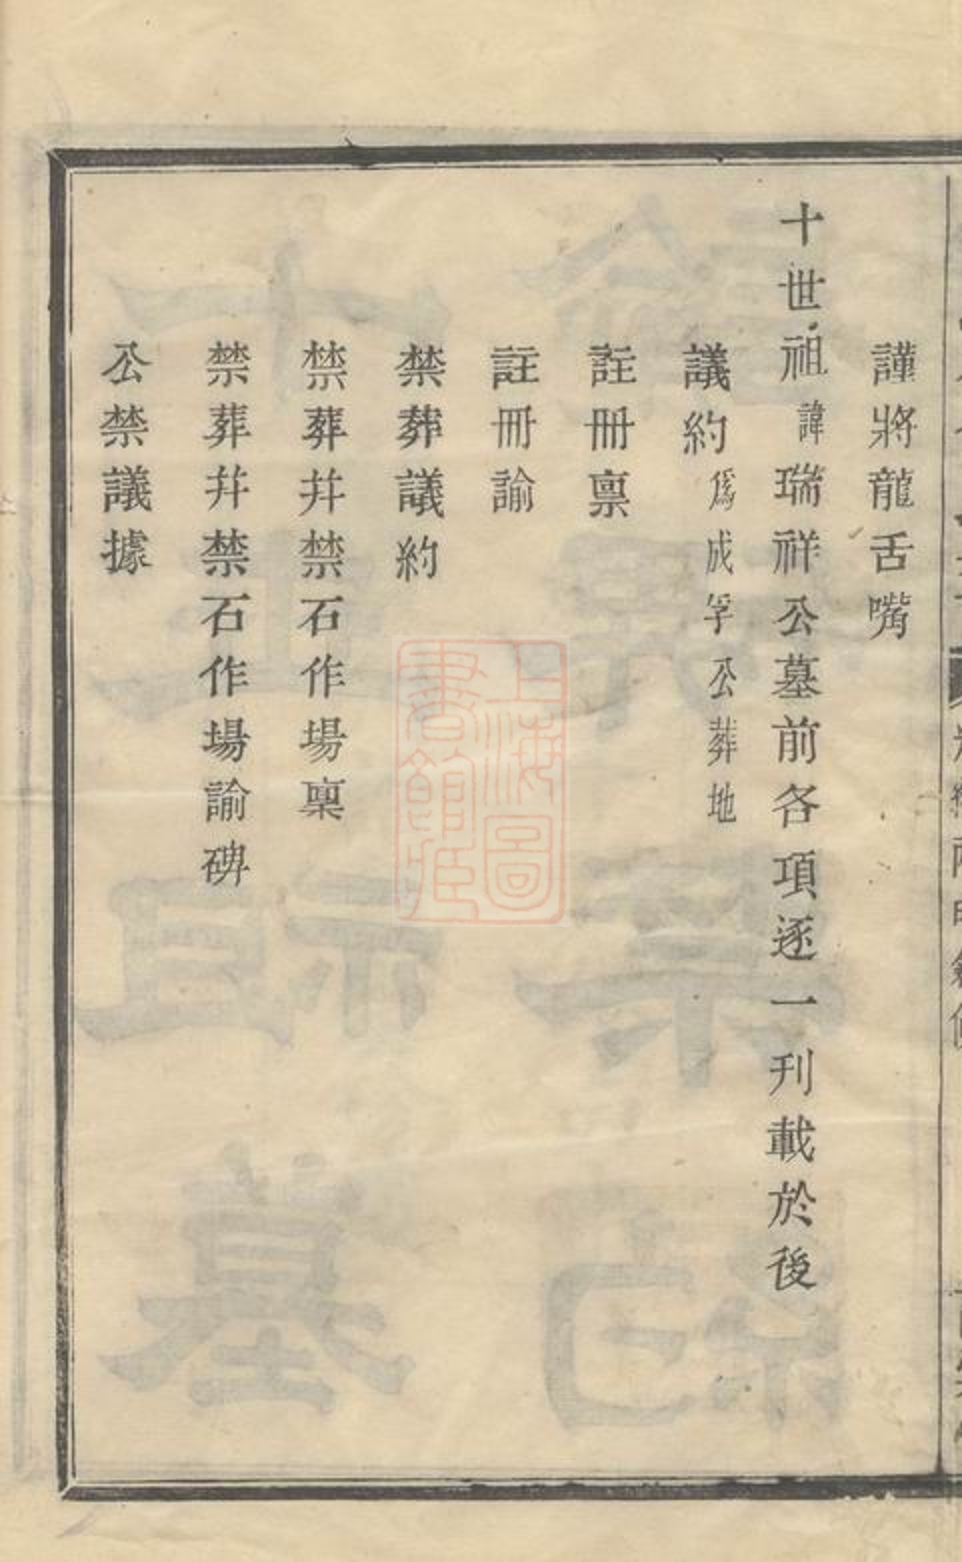 謹將龍舌嘴
十世祖諱瑞祥公墓前各項逐一刊載於後
議約爲成孚公葬地
註冊禀
註冊諭
禁葬議約
禁葬幷禁石作場稟
禁葬幷禁石作場諭碑
公禁議據
上海圖書館藏